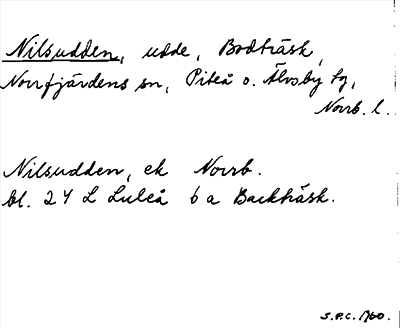 Nilsudden, udde, Bodträsk,
Norrfjärdens sn, Piteå o. Älvsby tg,
Norrb. l.
Nilsudden, ek Norrb.
bl. 24 L Luleå 6 a Backträsk.
S.P.C. 1960.